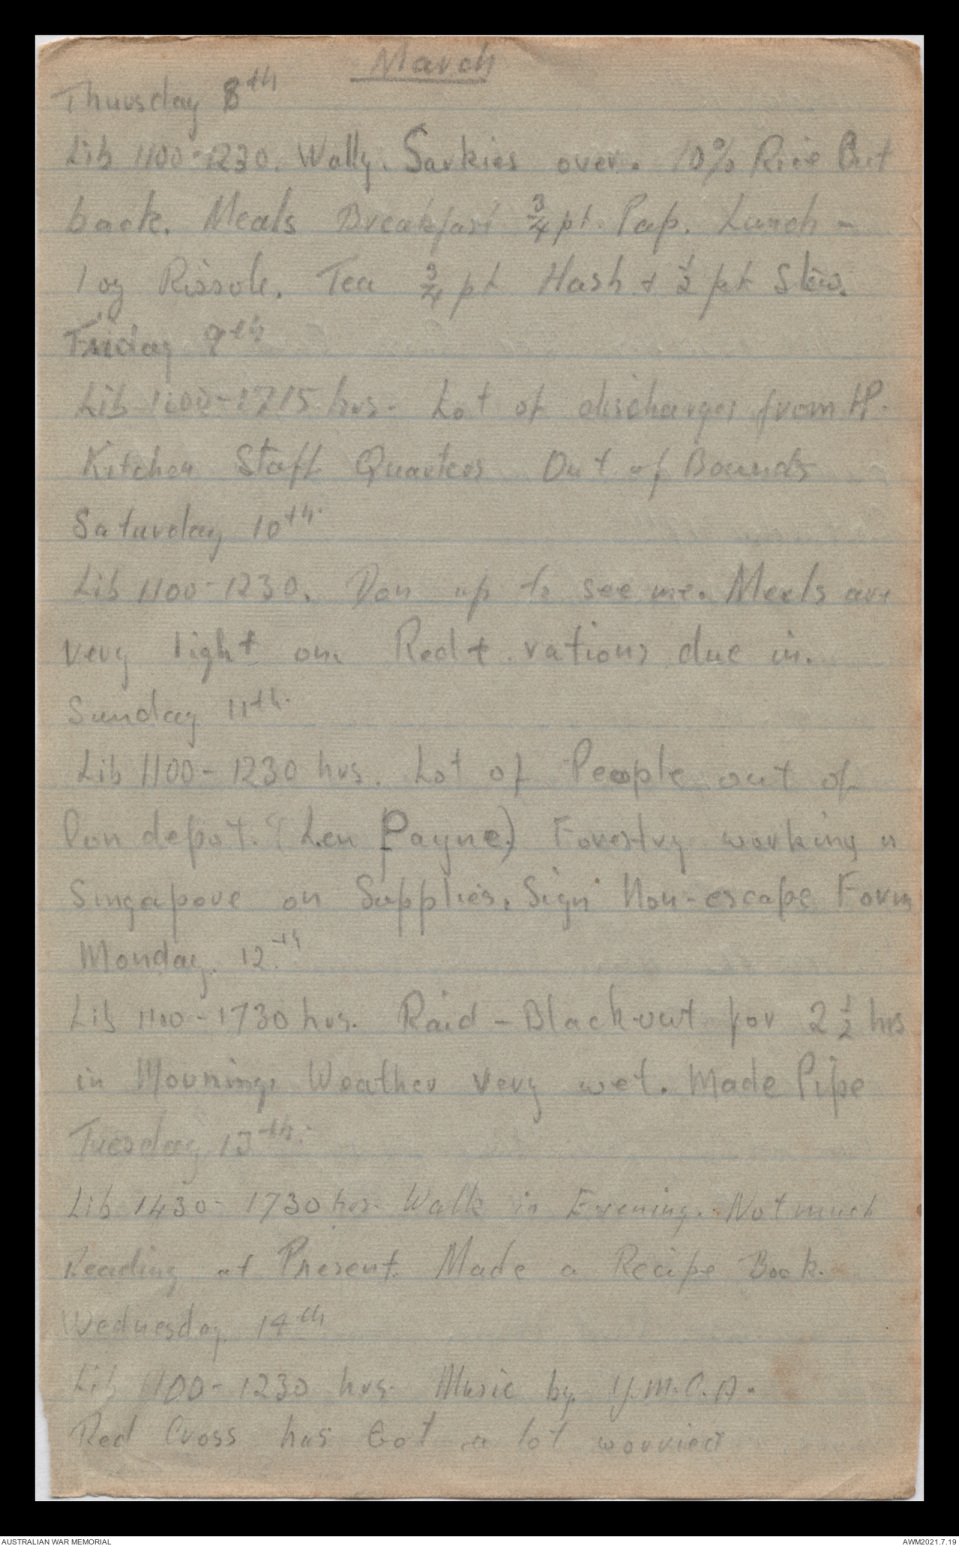 March
Thursday 8th
Lib 1100-1230. Wally. Sarkies over. 10% Rice But
back. Meals Breakfast 3/4 pt. Pap. Lunch -
1 og Rissole. Tea 3/4 pt Hash + 1/2 pt Stew.
Friday 9th
Lib 1100-1715 hrs. Lot of discharges from H.
Kitchen Staff Quarters Out of Bounds
Saturday 10th.
Lib 1100-1230. Don up to see me. Meals are
very light on. Red + rations due in.
Sunday 11th.
Lib 1100-1230 hrs. Lot of People out of
Con depot. (Len Payne.) Forestry working
Singapore on Supplies. Sign Non-escape Form
Monday. 12th
Lib 1100-1730 hrs. Raid - Black-out for 2 1/2 hrs
in Morning, Weather very wet. Made Pipe
Tuesday 13th.
Lib 1430-1730 hrs. Walk in Evening. Not much
Reading at Present. Made a Recipe Book.
Wednesday 14th
Lib 1100-1230 hrs. Music by Y.M.C.A.
Red Cross has Got a lot worried
AUSTRALIAN WAR MEMORIAL
AWM2021.7.19